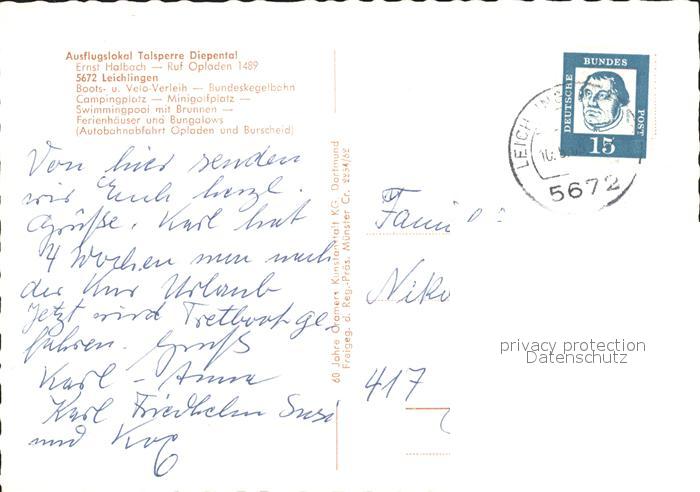 Ausflugslokal Talsperre Diepental
Ernst Halbach — Ruf Opladen 1489
5672 Leichlingen
Boots- u. Velo-Verleih — Bundeskegelbahn
Campingplatz — Minigolfplatz —
Swimmingpool mit Brunnen —
Ferienhäuser und Bungalows
(Autobahnabfahrt Opladen und Burscheid)
Von hier senden
wir Euch herzl.
Grüße. Karl hat
4 Wochen nun nach
der Kur Urlaub
Jetzt wird Tretboot ge-
fahren. Gruß
Karl - Anna
Karl Friedhelm Susi
und
60 Jahre Cramers Kunstanstalt KG. Dortmund
Freigeg. d. Reg.-Präs. Münster Cr. 2234/62
DEUTSCHE
BUNDES
POST
15
LEICH
5672
Fami
Niko
417
privacy protection
Datenschutz